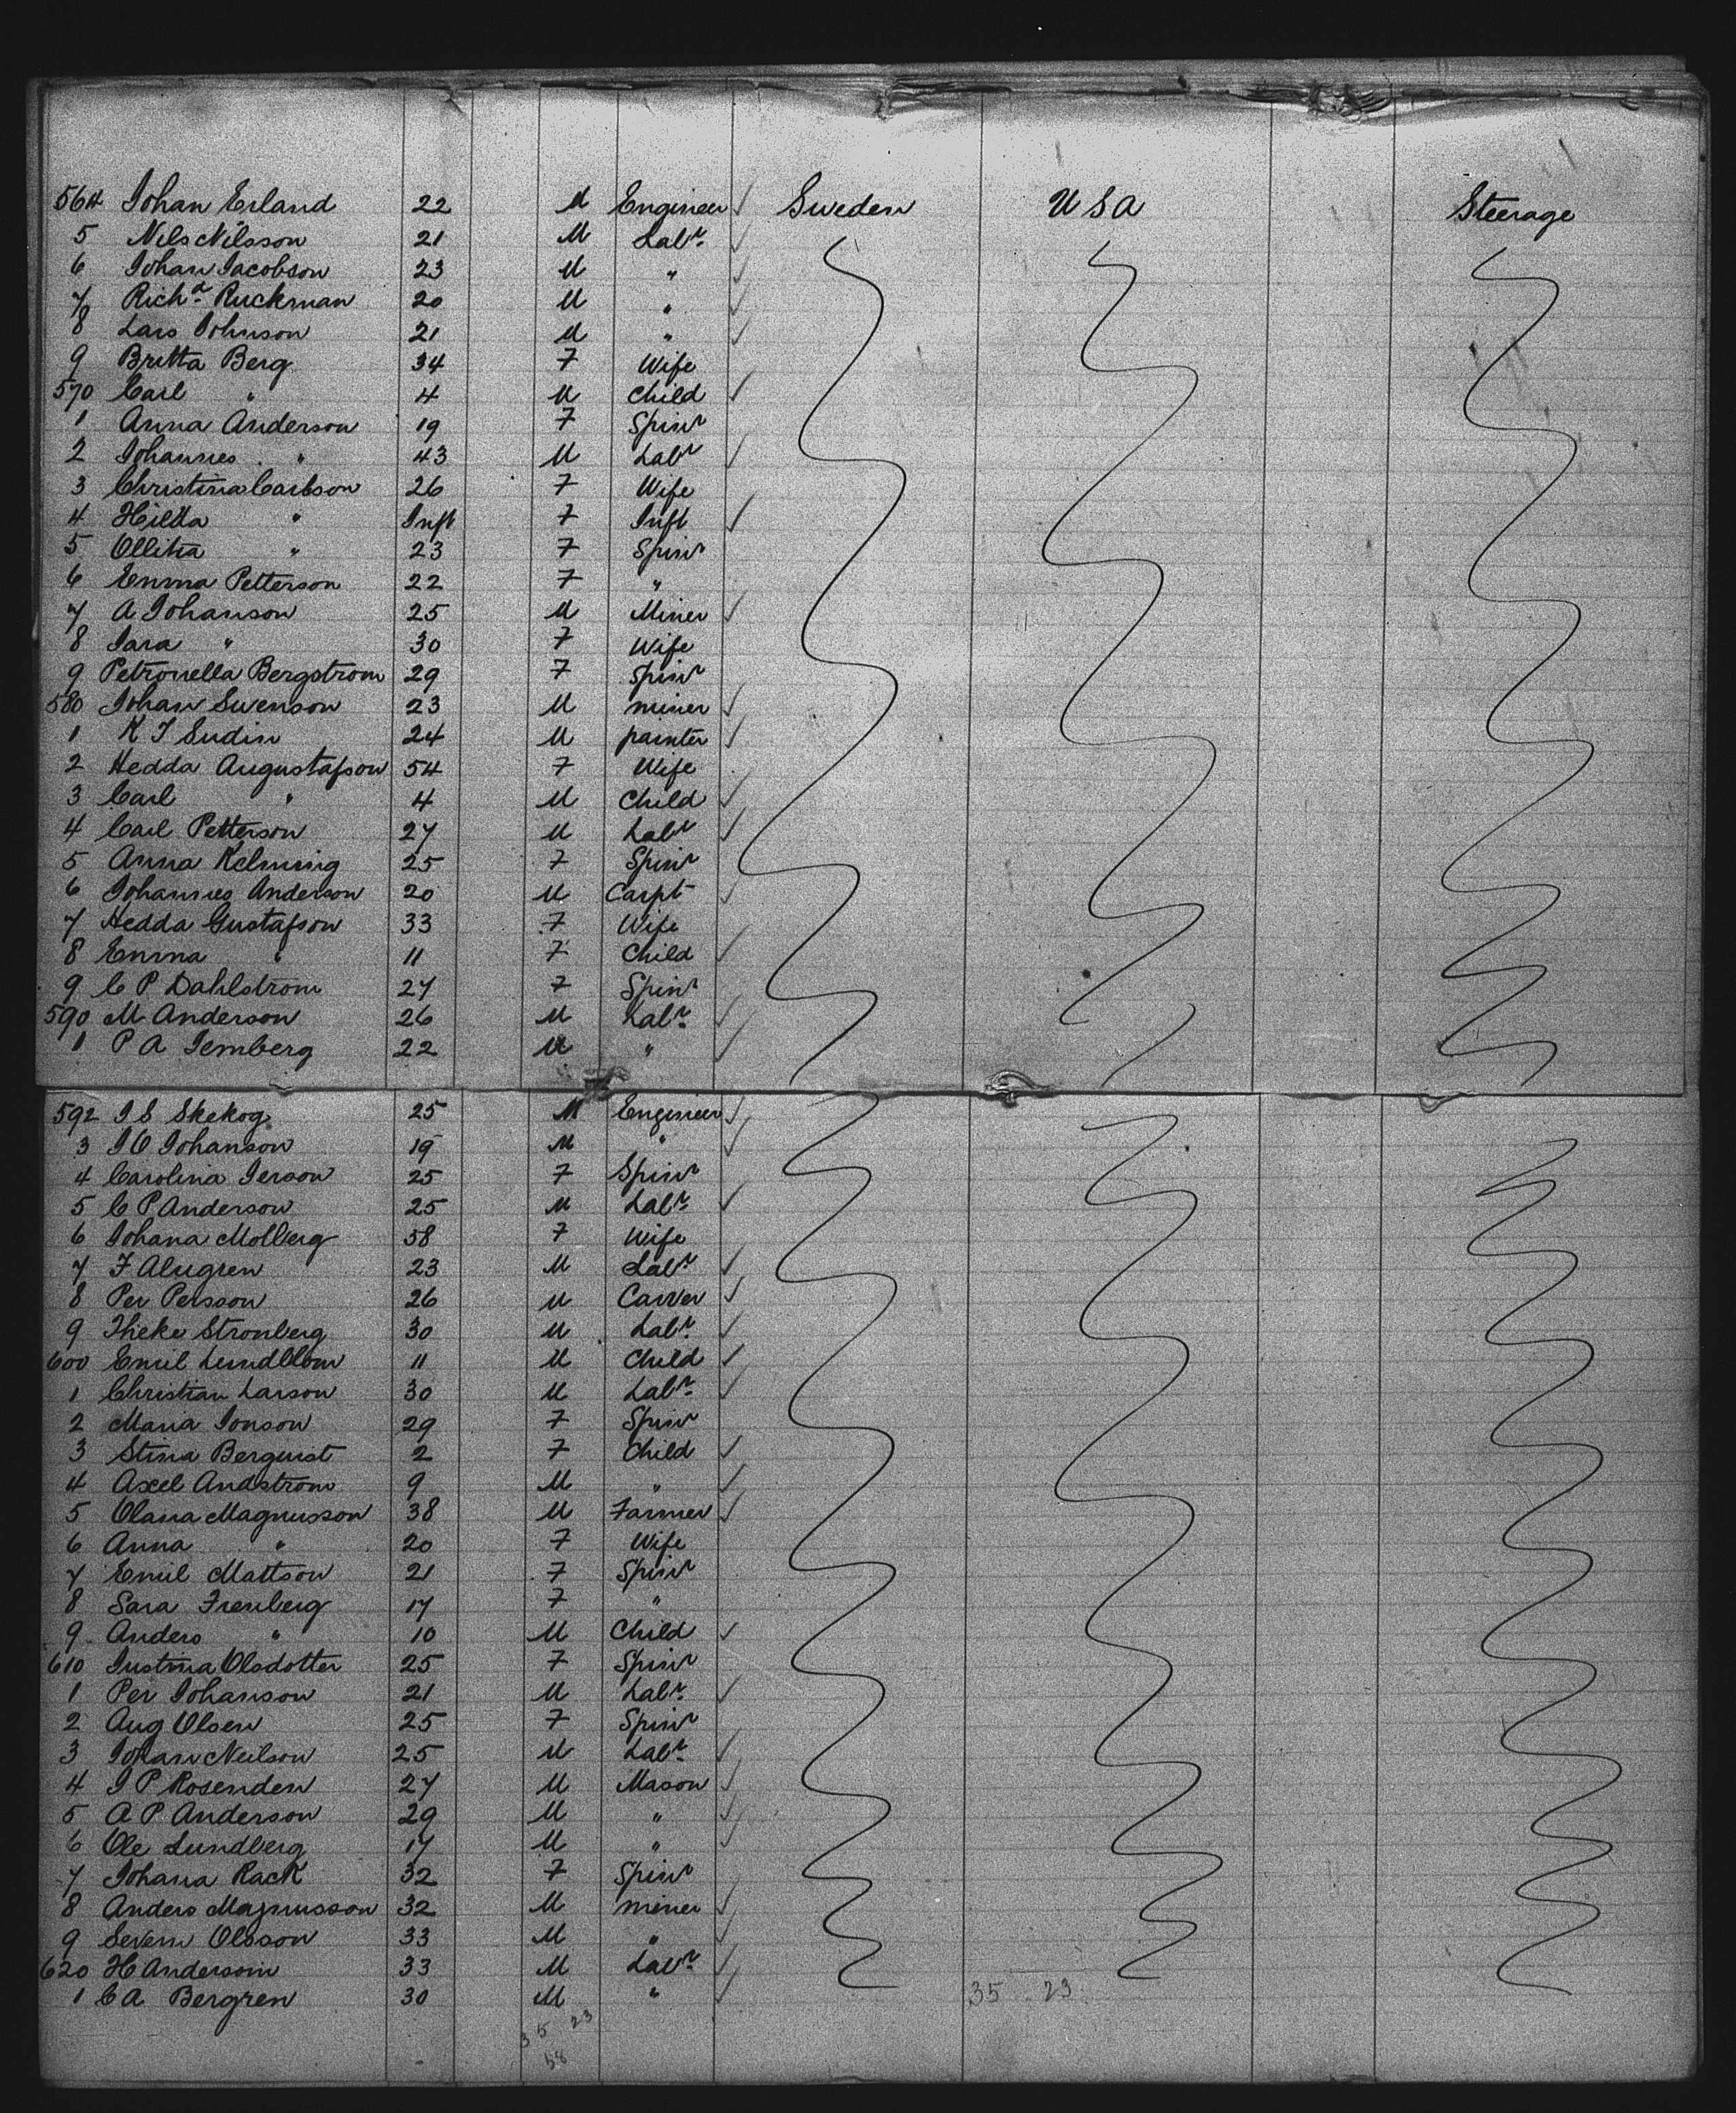 564 Johan Erland 22 M Engineer Sweden USA Steerage
5 Nils Nilsson 21 M Labr
6 Johan Jacobson 23 M "
7 Richd Ruckman 20 M "
8 Lars Johnson 21 M "
9 Britta Berg 34 F Wife
570 Carl " 4 M Child
1 Anna Anderson 19 F Spinr
2 Johannes " 43 M Labr
3 Christina Carlson 26 F Wife
4 Hilda " Inft F Inft
5 Ollitia " 23 F Spinr
6 Emma Petterson 22 F "
7 A Johanson 25 M Miner
8 Sara " 30 F Wife
9 Petronella Bergstrom 29 F Spinr
580 Johan Swenson 23 M miner
1 K J Sudin 24 M painter
2 Hedda Augustafson 54 F Wife
3 Carl " 4 M Child
4 Carl Petterson 27 M Labr
5 Anna Kelming 25 F Spinr
6 Johannes Anderson 20 M Carpt
7 Hedda Gustafson 33 F Wife
8 Emma " 11 F Child
9 C P Dahlstrom 27 F Spinr
590 M Anderson 26 M Labr
1 P A Jemberg 22 M "
592 J S Skekog 25 M Engineer
3 J O Johanson 19 M "
4 Carolina Jerson 25 F Spinr
5 C P Anderson 25 M Labr
6 Johana Molberg 58 F Wife
7 F Alugren 23 M Labr
8 Per Persson 26 M Carver
9 Theke Stronberg 30 M Labr
600 Emil Lundblom 11 M Child
1 Christian Larson 30 M Labr
2 Maria Jonson 29 F Spinr
3 Stina Berquist 2 F Child
4 Axel Andstrom 9 M "
5 Olana Magnusson 38 M Farmer
6 Anna " 20 F Wife
7 Emil Mattson 21 F Spinr
8 Sara Frenberg 17 F "
9 Anders " 10 M Child
610 Justina Olsdotter 25 F Spinr
1 Per Johanson 21 M Labr
2 Aug Olsen 25 F Spinr
3 Johan Neilson 25 M Labr
4 J P Rosenden 27 M Mason
5 A P Anderson 29 M "
6 Ole Lundberg 17 M "
7 Johana Rack 32 F Spinr
8 Anders Magnusson 32 M miner
9 Severn Olsson 33 M "
620 H Anderson 33 M Labr
1 C A Bergren 30 M " 35 23
35 23
58